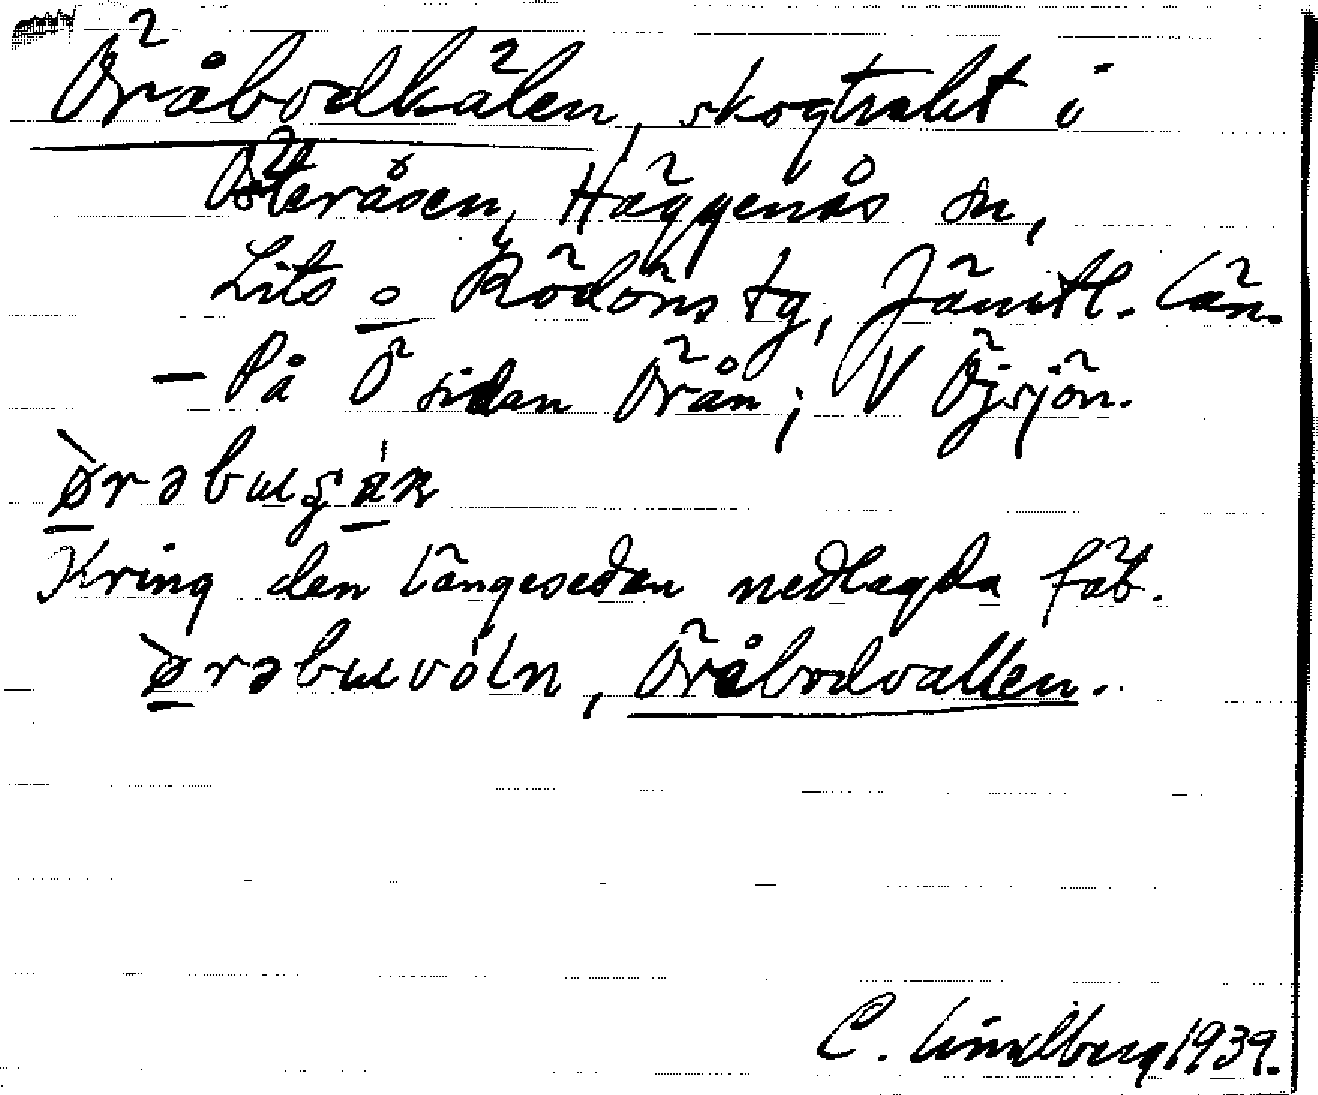 Öråbodkälen, skogtrakt i
Österåsen, Häggenås sn,
Lits o Rödöns tg, Jämtl. län.
— På Ö sidan Örån; V Öjsjön.
Kring den längesedan nedlagda fäb.
Öråbodvallen.
C. Lindberg 1939.